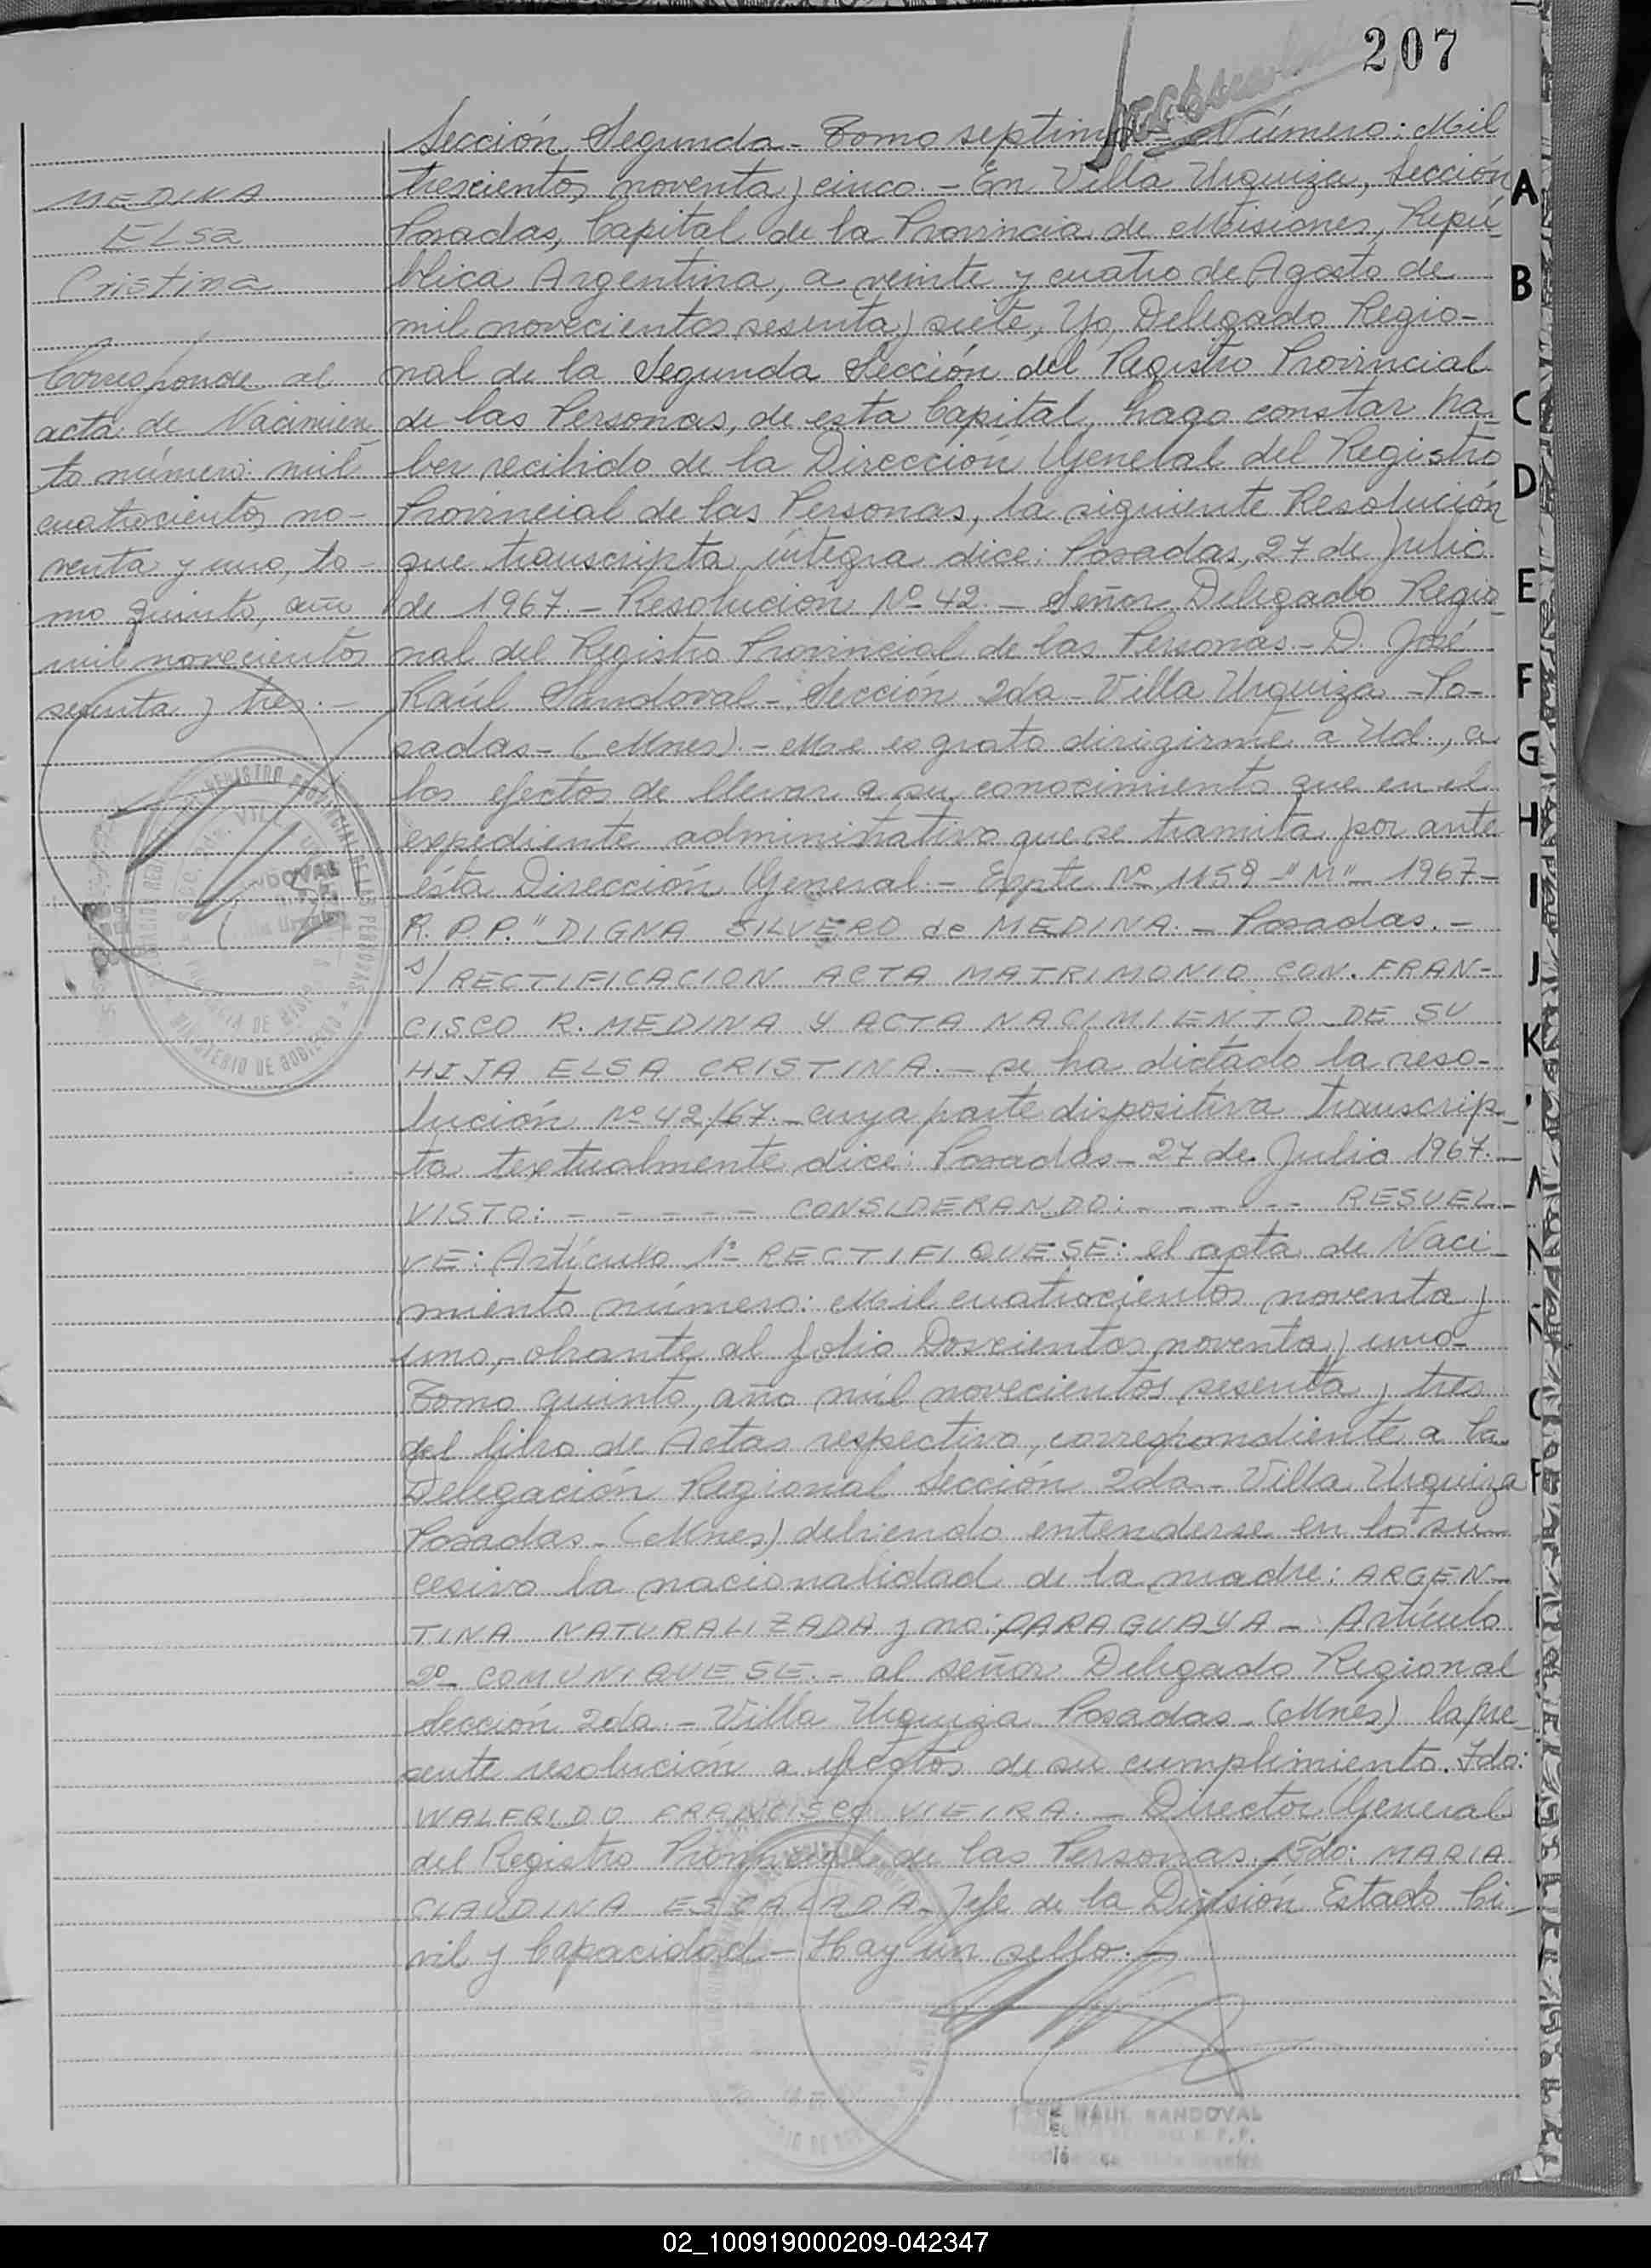 207
Sección Segunda - Tomo septimo - Número: Mil
trescientos noventa y cinco. - En Villa Urquiza, Sección
Posadas, Capital de la Provincia de Misiones, Repú-
blica Argentina, a veinte y cuatro de Agosto de
mil novecientos sesenta y siete, Yo, Delegado Regio-
nal de la Segunda Sección del Registro Provincial
de las Personas, de esta Capital, hago constar ha-
ber recibido de la Dirección General del Registro
Provincial de las Personas, la siguiente Resolución
que transcripta íntegra dice: Posadas, 27 de Julio
de 1967. - Resolución Nº 42. - Señor Delegado Regio-
nal del Registro Provincial de las Personas - D. José
Raúl Sandoval - Sección 2da - Villa Urquiza - Po-
sadas - (Mnes) - Me es grato dirigirme a Ud., a
los efectos de llevar a su conocimiento que en el
expediente administrativo que se tramita por ante
ésta Dirección General - Expte Nº 1159 - "M" - 1967 -
R.P.P. "DIGNA SILVERO de MEDINA. - Posadas. -
s/ RECTIFICACION ACTA MATRIMONIO CON. FRAN-
CISCO R. MEDINA Y ACTA NACIMIENTO DE SU
HIJA ELSA CRISTINA. - se ha dictado la reso-
lución Nº 42/67. - cuya parte dispositiva transcrip-
ta textualmente dice: Posadas - 27 de Julio 1967. -
VISTO: - - - - - - CONSIDERANDO: - - - - - RESUEL-
VE: Artículo 1º RECTIFIQUESE: el acta de Naci-
miento número: Mil cuatrocientos noventa y
uno, - obrante al folio Doscientos noventa y uno -
Tomo quinto, año mil novecientos sesenta y tres
del libro de Actas respectivo, correspondiente a la
Delegación Regional Sección 2da - Villa Urquiza
Posadas - (Mnes) debiendo entenderse en lo su-
cesivo la nacionalidad de la madre: ARGEN-
TINA NATURALIZADA y no: PARAGUAYA - Artículo
2º COMUNIQUESE. - al señor Delegado Regional
Sección 2da. - Villa Urquiza Posadas - (Mnes) la pre-
sente resolución a efectos de su cumplimiento. Fdo:
WALFRIDO FRANCISCO VIEIRA. - Director General
del Registro Provincial de las Personas. Fdo: MARIA
CLAUDINA ESCALADA - Jefe de la División Estado Ci-
vil y Capacidad - Hay un sello. -
MEDINA
ELSA
Cristina
Corresponde al
acta de Nacimien-
to número: mil
cuatrocientos no-
venta y uno, to-
mo quinto, año
mil novecientos
sesenta y tres. -
RAUL SANDOVAL
A
B
C
D
E
F
G
H
I
J
K
02_100919000209-042347